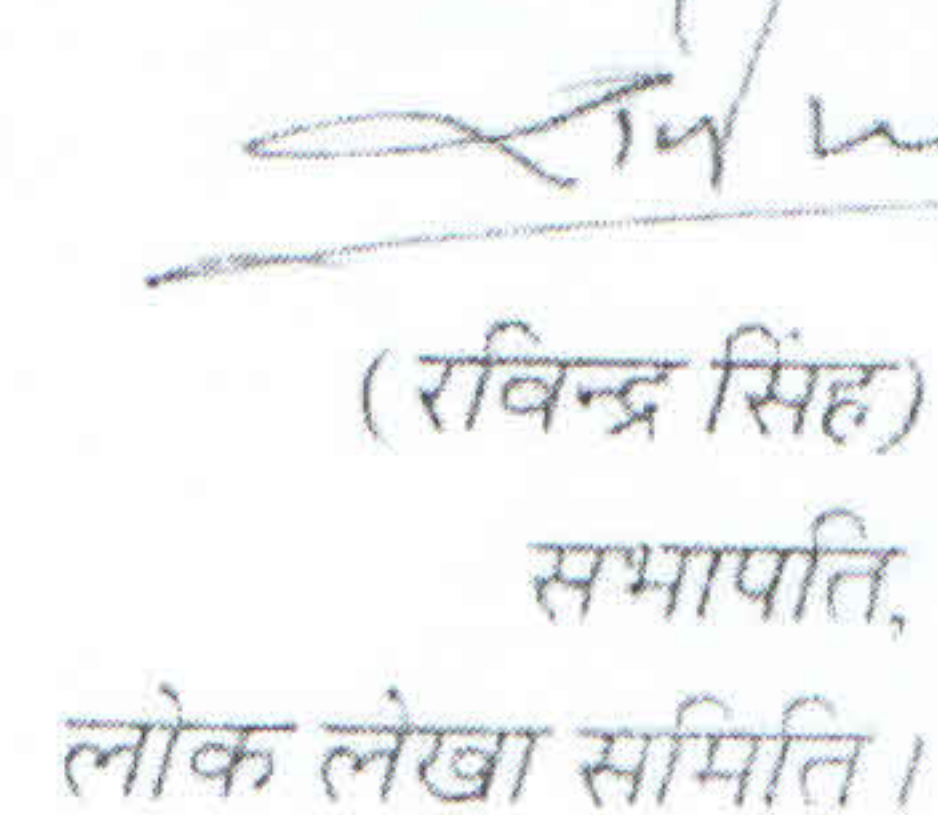 (रविन्द्र सिंह)
सभापति,
लोक लेखा समिति।